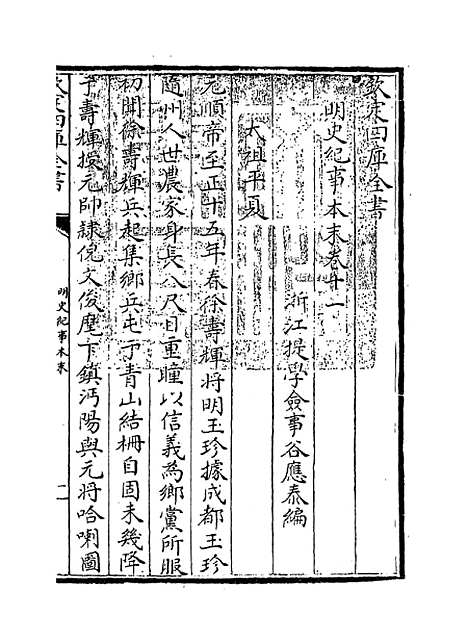 欽定四庫全書
明史紀事本末卷十一
浙江提學僉事谷應泰編
太祖平夏
元順帝至正十五年春徐壽輝將明玉珍據成都玉珍
隨州人世農家身長八尺目重瞳以信義為鄉黨所服
初聞徐壽輝兵起集鄉兵屯于青山結柵自固未幾降
于壽輝授元帥隸倪文俊麾下鎮沔陽與元將哈喇圖
欽定四庫全書
明史紀事本末
一